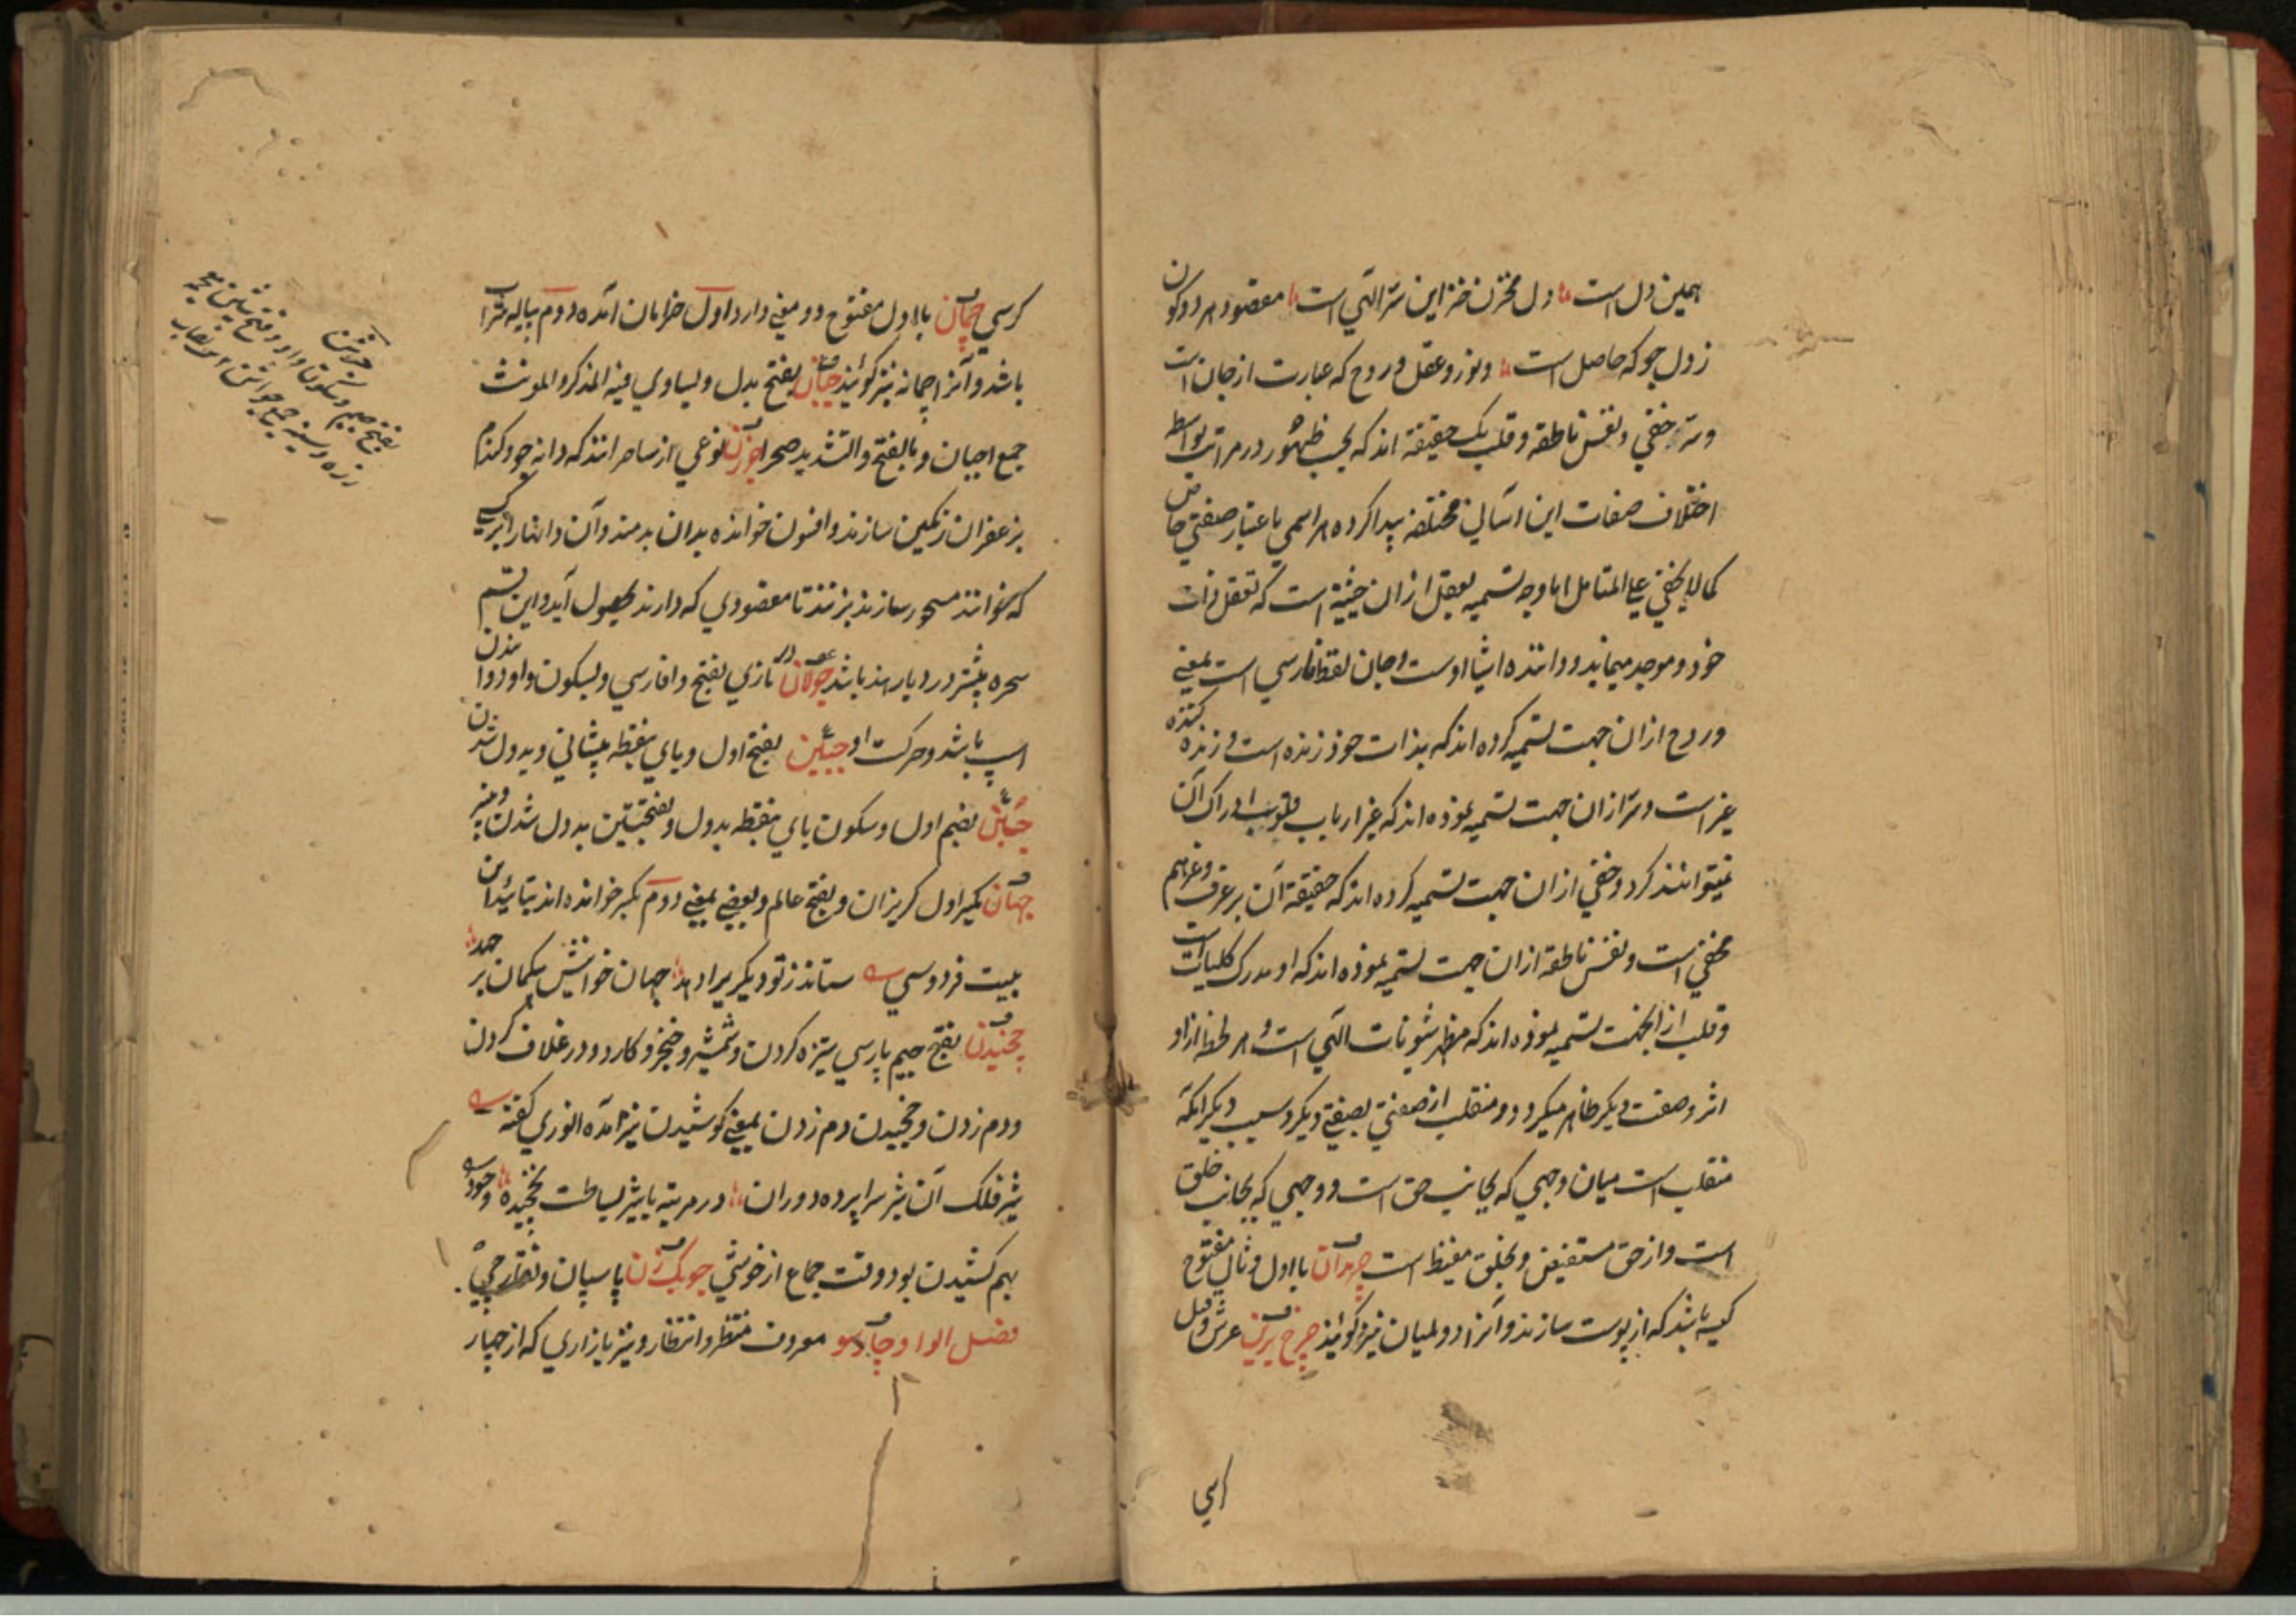 همین دل است دل مخزن خزاین سر الهی است مقصود هر دو کون
ز دل جو که حاصل است و نور و عقل و روح که عبارت از جان است
و سر و خفی و نفس ناطقه و قلب یک حقیقة اند که بحسب ظهور در مراتب بواسطه
اختلاف صفات این اسامی مختلفه پیدا کرده هر اسمی باعتبار صفتی خاص
کما لا یخفی علی المتامل اما وجه تسمیه بعقل ازان حیثیة است که تعقل ذات
خود و موجد مینماید و داننده اشیا اوست و جان لفظ فارسی است بمعنی
و روح ازان جهت تسمیه کرده اند که بذات خود زنده است و زنده کننده
غیر است و سر ازان جهت تسمیه نموده اند که غیر ارباب قلوب ادراک آن
نمیتوانند کرد و خفی ازان جهت تسمیه کرده اند که حقیقة آن بر عرفا و غیرهم
مخفی است و نفس ناطقه ازان جهت تسمیه نموده اند که او مدرک کلیات است
و قلب ازانجهت تسمیه نموده اند که مظهر شئونات الهی است و هر لحظه ازو
اثر و صفت دیگر ظاهر میگردد و منقلب از صفتی بصفتی دیگر و سبب دیگر آنکه
منقلب است میان وجهی که بجانب حق است و وجهی که بجانب خلق
است و از حق مستفیض و بخلق مفیظ است چرمدان با اول و ثانی مفتوح
کیسه باشد که از پوست سازند و آنرا دولمیان نیز گویند چرخ برین عرش و قیل
کرسی
کرسی چمان با اول مفتوح دو معنی دارد اول خرامان آمده دوم پیاله شراب
باشد و آنرا چمانه نیز گویند جبان بفتح بددل و یساوی فیه المذکر و المونث
جمع اجبان و بالفتح و التشدید صحرا جوزن نوعی از ساحرانند که دانه جو و گندم
بزعفران رنگین سازند و افسون خوانده بدان بدمند و آن دانها را بر کسی
که خوانند مسحور سازند بزنند تا مقصودی که دارند بحصول آید و این قسم
سحره بیشتر در دیار هند باشد جولان تازی بفتح و فارسی و بسکون واو دوانیدن
اسپ باشد و حرکت او جبین بفتح اول و بای بنقطه پیشانی و بددل شدن
جبن بضم اول و سکون بای بنقطه بددل و بفتحتین بددل شدن و پنیر
جهان بکسر اول گریزان و بفتح عالم و بعضی بمعنی دوم بکسر خوانده اند بتائید این
بیت فردوسی ستاند ز تو دیگریرا دهد جهان خوانیش بیگمان بر جهد
چخیدن بفتح جیم پارسی ستیزه کردن و شمشیر و خنجر و کارد و در غلاف کردن
و دم زدن و چخیدن دم زدن بمعنی کوشیدن نیز آمده انوری گفته
شیر فلک آن شیر سراپرده دوران در مرتبه با شیر بساطت نچخیده
بهم کشیدن بود وقت جماع از خوشی چوبک زن پاسبان و نقارچی
فصل الواو چارسو معروف منتظر و انتظار و نیز بازاری که از چهار
بفتح جیم و سکون واو و فتح شین معجمه
زره و سینه جمع جواشن